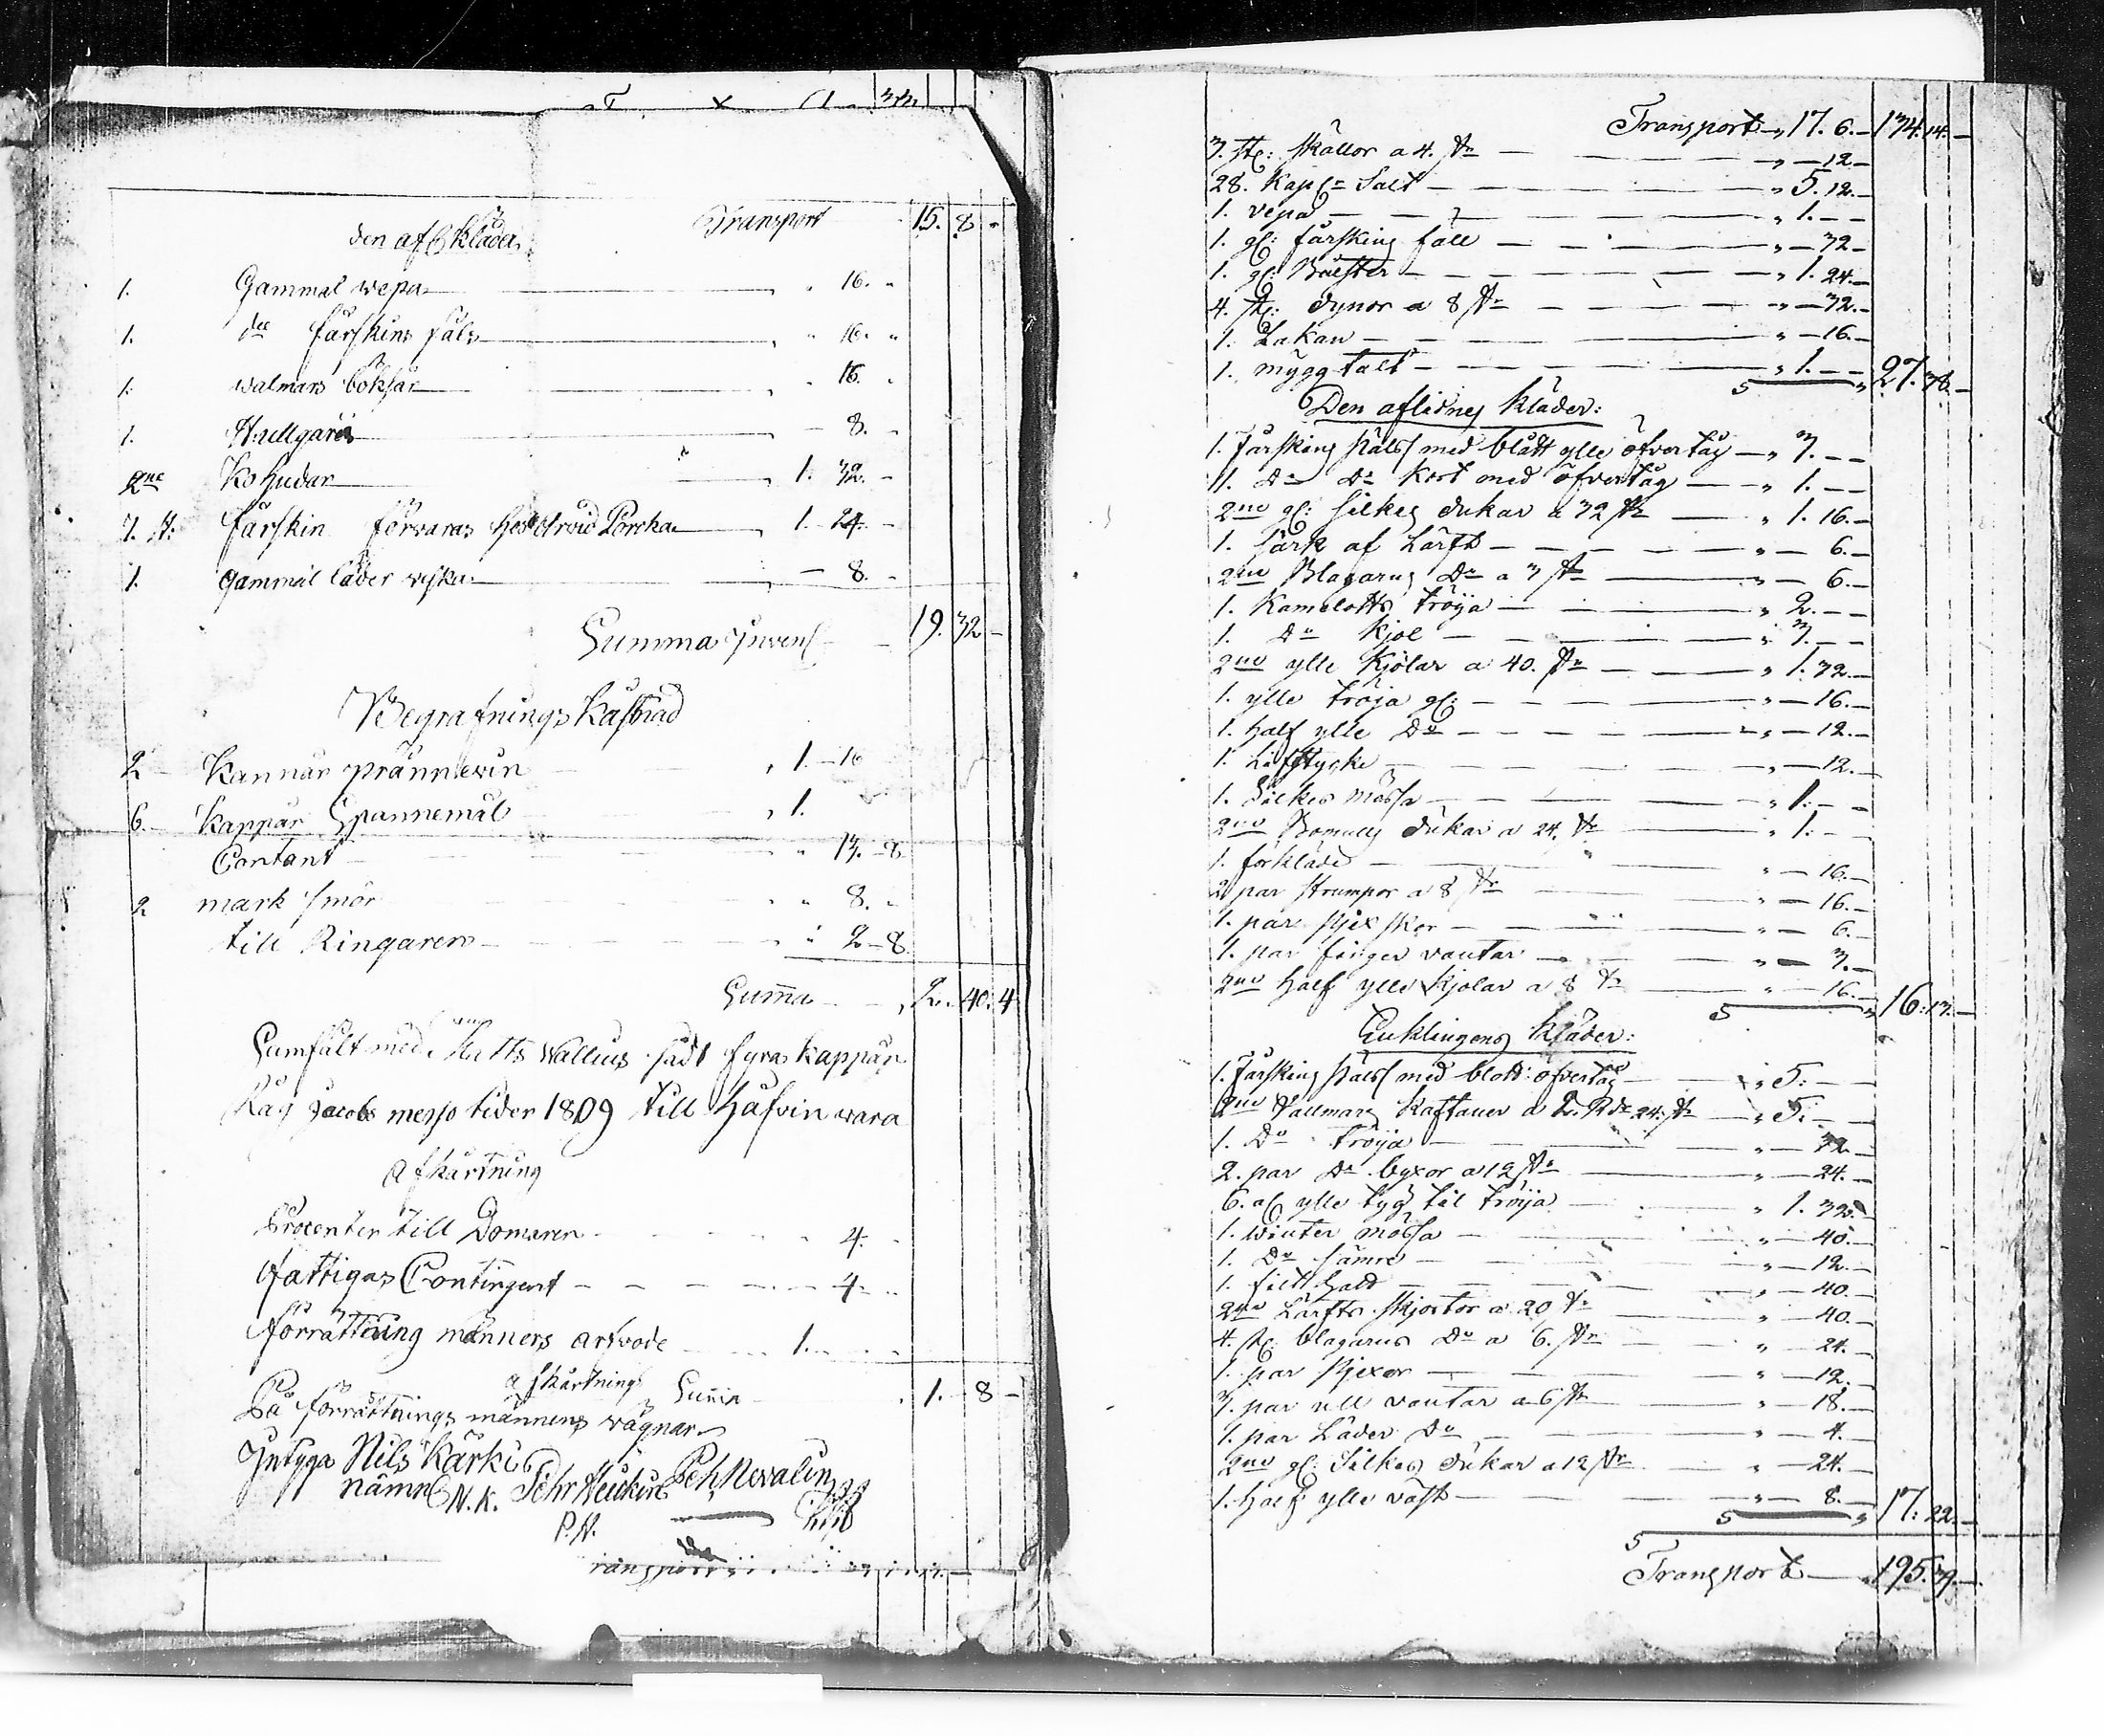 Transport 15. 8 -
den afl Kläder
1. Gammal wepa " 16. "
1. dee fårskins päls " 16. "
1. walmars böksår " 16. "
1. - 8. -
2ne Ko hudar 1. 32. -
7. st: fårskin förvaras hos Arvid Porkka 1. 24. -
1. gammal läder - 8. -
Summa Invent 19. 32 -
Begrafnings Kåstnad
2 Kannår prännewin " 1. - 16
6. Kappar Spannemål " 1.
Contant " 13. - 8
2 mark smör " 8. "
till Ringaren " 2 - 8
Suma " 2. 40. 4
Matts Wallius sådt fyra kappar
Råg Jacobs messo tider 1809 till hälvin wara
afkårtning
Procenter till Domaren 4. -
fattigas Contingent 4. -
förrättning männers arvode 1. - -
afkårtning Suma 1. - 8 -
På förrättnings männens wägnar
Intyga Nils Kärki Pehr Heickin Peh Nevalin
nämn N. K.
P. H.
Transport " 17. 6. - 174. 14. -
3. st: skållor a 4. st " - 12 -
28. Kap: Salt " 5. 12. -
1. vepa " 1. - -
1. gl: fårskins fäll " - 32 -
1. gl: Bolster " 1. 24. -
4. st: dynor a 8 st " - 32. -
1. Lakan " - 16. -
1. mygg tält " 1. - - 27. 38. -
Den aflidnes Kläder:
1. Fårskins päls med blått ylle öfvertåg " 3. - -
1. Do Do Kort med öfvertåg " 1. - -
2ne gl: silkes dukar a 32 st " 1. 16. -
1. särk af Lärft " - 6. -
2ne Blagarns Do a 3 st " - 6. -
1. Kamelotts tröija " 2. - -
1. Do kjol " 3. - -
2ne ylle Kjolar a 40. st " 1. 32. -
1. ylle tröja gl: " - 16. -
1. half ylle Do " - 12. -
1. Lifstycke " - 12. -
1. Silkes mössa " 1. - -
2ne Bomulls dukar a 24. st " 1. -
1. förkläde " - 16. -
2 par strumpor a 8 st " - 16. -
1. par skor " - 6. -
1. par finger vantar " - 3. -
2ne half ylle Kjolar a 8 st " - 16. - 16: 13. -
Enklingens Kläder:
1. Fårskins päls med blått öfvertåg " 5. - -
2ne Vallmars Kaftaner a 2. Rd 24. st " 5. -
1. Do tröija " - 32. -
2. par Do byxor a 12 st " - 24. -
6. al ylle tyg til tröija " 1. 32. -
1. Winter mössa " - 40. -
1. Do sämre " - 12. -
1. filt hatt " - 40. -
2ne Lärfts skjortor a 20 st " - 40. -
4. st: blagarns Do a 6. st " - 24. -
1. par " - 12. -
3. par ull vantar a 6 st " - 18. -
1. par Läder Do " - 4. -
2ne gl: Silkes dukar a 12 st " - 24. -
1. half ylle väst " - 8. - 17: 22. -
Transport " 195. 39. -